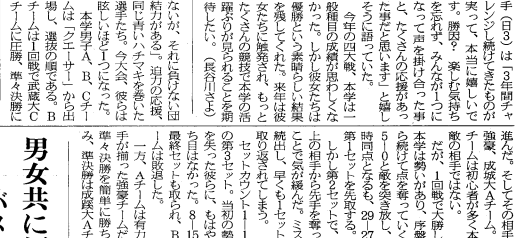 手(日3)は「3年間チャ
レンジし続けてきたものが
実って、本当に嬉しいで
す。勝因? 楽しむ気持ち
を忘れず、みんなが1つに
なって声を掛け合った事
と、たくさんの応援があっ
た事だと思います」と嬉し
そうに語っていた。
今年の四大戦、本学は一
般種目の成績が思わしくな
かった。しかし彼女たちは
優勝という素晴らしい結果
を残してくれた。来年は彼
女たちに触発され、もっと
たくさんの競技で本学の活
躍ぶりが見られることを期
待したい。(長谷川さよ)
ないが、それに負けない団
結力がある」。迫力の応援、
同じ赤いハチマキを巻いた
選手たち。今大会、彼らは
眩しいほど1つになった。
本学男子A、B、Cチー
ムは「クエーサー」から出
場し、選抜の扇である。B
チームは1回戦で武蔵C
チームに圧勝、準々決勝に
進んだ。そしてその相手
強豪、成城大Aチーム。
チームは初心者が多く本
敵の相手ではない。
だが、1回戦で大勝し
本学は勢いがあり、序盤
ら続けて点を奪っていく
5-0と敵を突き放し、
時同点となるも、29-27
第1セットを先取する。
しかし第2セットで、
上の相手から先手を奪っ
ことで気が緩んだ。ミス
続出し、早くも1セット
取り返されてしまう。
セットカウント1-1
の第3セット。当初の勢
を失った彼らに、もはや
ち目はなかった。8-15
最終セットも取られ、B
ームは敗退した。
一方、Aチームは有力
手が揃った強豪チームだ
準々決勝を簡単に勝ち
み、準決勝は成蹊大Aチ
男女共に
バ